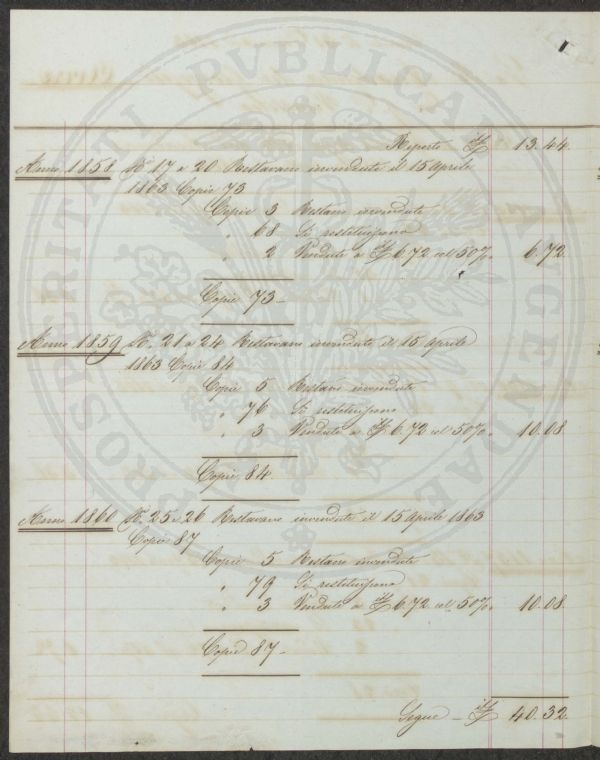 Riporto £ 13.44
Anno 1858 N. 17 a 20 Restavano invendute il 15 Aprile
1863 Copie 73
Copie 3 Restano invendute
" 68 Si restituiscono
" 2 Vendute a £ 6.72 col 50%. 6.72
Copie 73 -
Anno 1859 N. 21 a 24 Restavano invendute il 15 Aprile
1863 Copie 84
Copie 5 Restano invendute
" 76 Si restituiscono
" 3 Vendute a £ 6.72 col 50%. 10.08
Copie 84
Anno 1860 N. 25 a 26 Restavano invendute il 15 Aprile 1863
Copie 87
Copie 5 Restano invendute
" 79 Si restituiscono
" 3 Vendute a £ 6.72 col 50%. 10.08
Copie 87 -
Segue - £ 40.32
PROSPERITATI PVBLICAE AVGENDAE